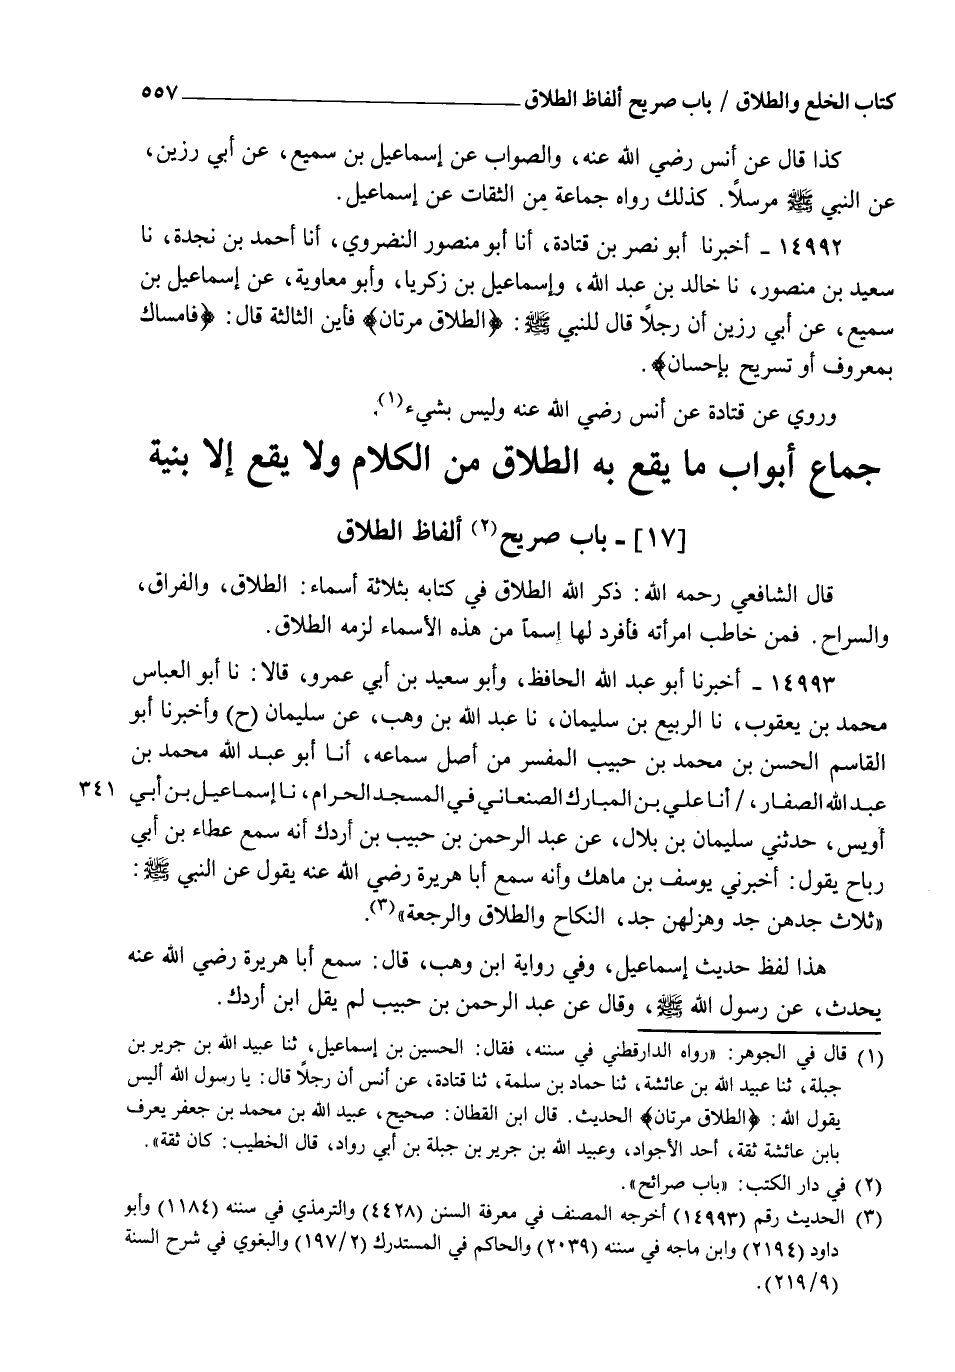 كتاب الخلع والطلاق / باب صريح ألفاظ الطلاق ٥٥٧
كذا قال عن أنس رضي الله عنه، والصواب عن إسماعيل بن سميع، عن أبي رزين،
عن النبي ﷺ مرسلاً. كذلك رواه جماعة من الثقات عن إسماعيل.
١٤٩٩٢ ـ أخبرنا أبو نصر بن قتادة، أنا أبو منصور النضروي، أنا أحمد بن نجدة، نا
سعيد بن منصور، نا خالد بن عبد الله، وإسماعيل بن زكريا، وأبو معاوية، عن إسماعيل بن
سميع، عن أبي رزين أن رجلاً قال للنبي ﷺ: ﴿الطلاق مرتان﴾ فأين الثالثة قال: ﴿فامساك
بمعروف أو تسريح بإحسان﴾.
وروي عن قتادة عن أنس رضي الله عنه وليس بشيء(١).
جماع أبواب ما يقع به الطلاق من الكلام ولا يقع إلا بنية
[١٧] ـ باب صريح(٢) ألفاظ الطلاق
قال الشافعي رحمه الله: ذكر الله الطلاق في كتابه بثلاثة أسماء: الطلاق، والفراق،
والسراح. فمن خاطب امرأته فأفرد لها إسماً من هذه الأسماء لزمه الطلاق.
١٤٩٩٣ ـ أخبرنا أبو عبد الله الحافظ، وأبو سعيد بن أبي عمرو، قالا: نا أبو العباس
محمد بن يعقوب، نا الربيع بن سليمان، نا عبد الله بن وهب، عن سليمان (ح) وأخبرنا أبو
القاسم الحسن بن محمد بن حبيب المفسر من أصل سماعه، أنا أبو عبد الله محمد بن
عبد الله الصفار، / أنا علي بن المبارك الصنعاني في المسجد الحرام، نا إسماعيل بن أبي ٣٤١
أويس، حدثني سليمان بن بلال، عن عبد الرحمن بن حبيب بن أردك أنه سمع عطاء بن أبي
رباح يقول: أخبرني يوسف بن ماهك وأنه سمع أبا هريرة رضي الله عنه يقول عن النبي ﷺ:
«ثلاث جدهن جد وهزلهن جد، النكاح والطلاق والرجعة»(٣).
هذا لفظ حديث إسماعيل، وفي رواية ابن وهب، قال: سمع أبا هريرة رضي الله عنه
يحدث، عن رسول الله ﷺ، وقال عن عبد الرحمن بن حبيب لم يقل ابن أردك.
(١) قال في الجوهر: «رواه الدارقطني في سننه، فقال: الحسين بن إسماعيل، ثنا عبيد الله بن جرير بن
جبلة، ثنا عبيد الله بن عائشة، ثنا حماد بن سلمة، ثنا قتادة، عن أنس أن رجلاً قال: يا رسول الله أليس
يقول الله: ﴿الطلاق مرتان﴾ الحديث. قال ابن القطان: صحيح، عبيد الله بن محمد بن جعفر يعرف
بابن عائشة ثقة، أحد الأجواد، وعبيد الله بن جرير بن جبلة بن أبي رواد، قال الخطيب: كان ثقة».
(٢) في دار الكتب: «باب صرائح».
(٣) الحديث رقم (١٤٩٩٣) أخرجه المصنف في معرفة السنن (٤٤٢٨) والترمذي في سننه (١١٨٤) وأبو
داود (٢١٩٤) وابن ماجه في سننه (٢٠٣٩) والحاكم في المستدرك (١٩٧/٢) والبغوي في شرح السنة
(٢١٩/٩).